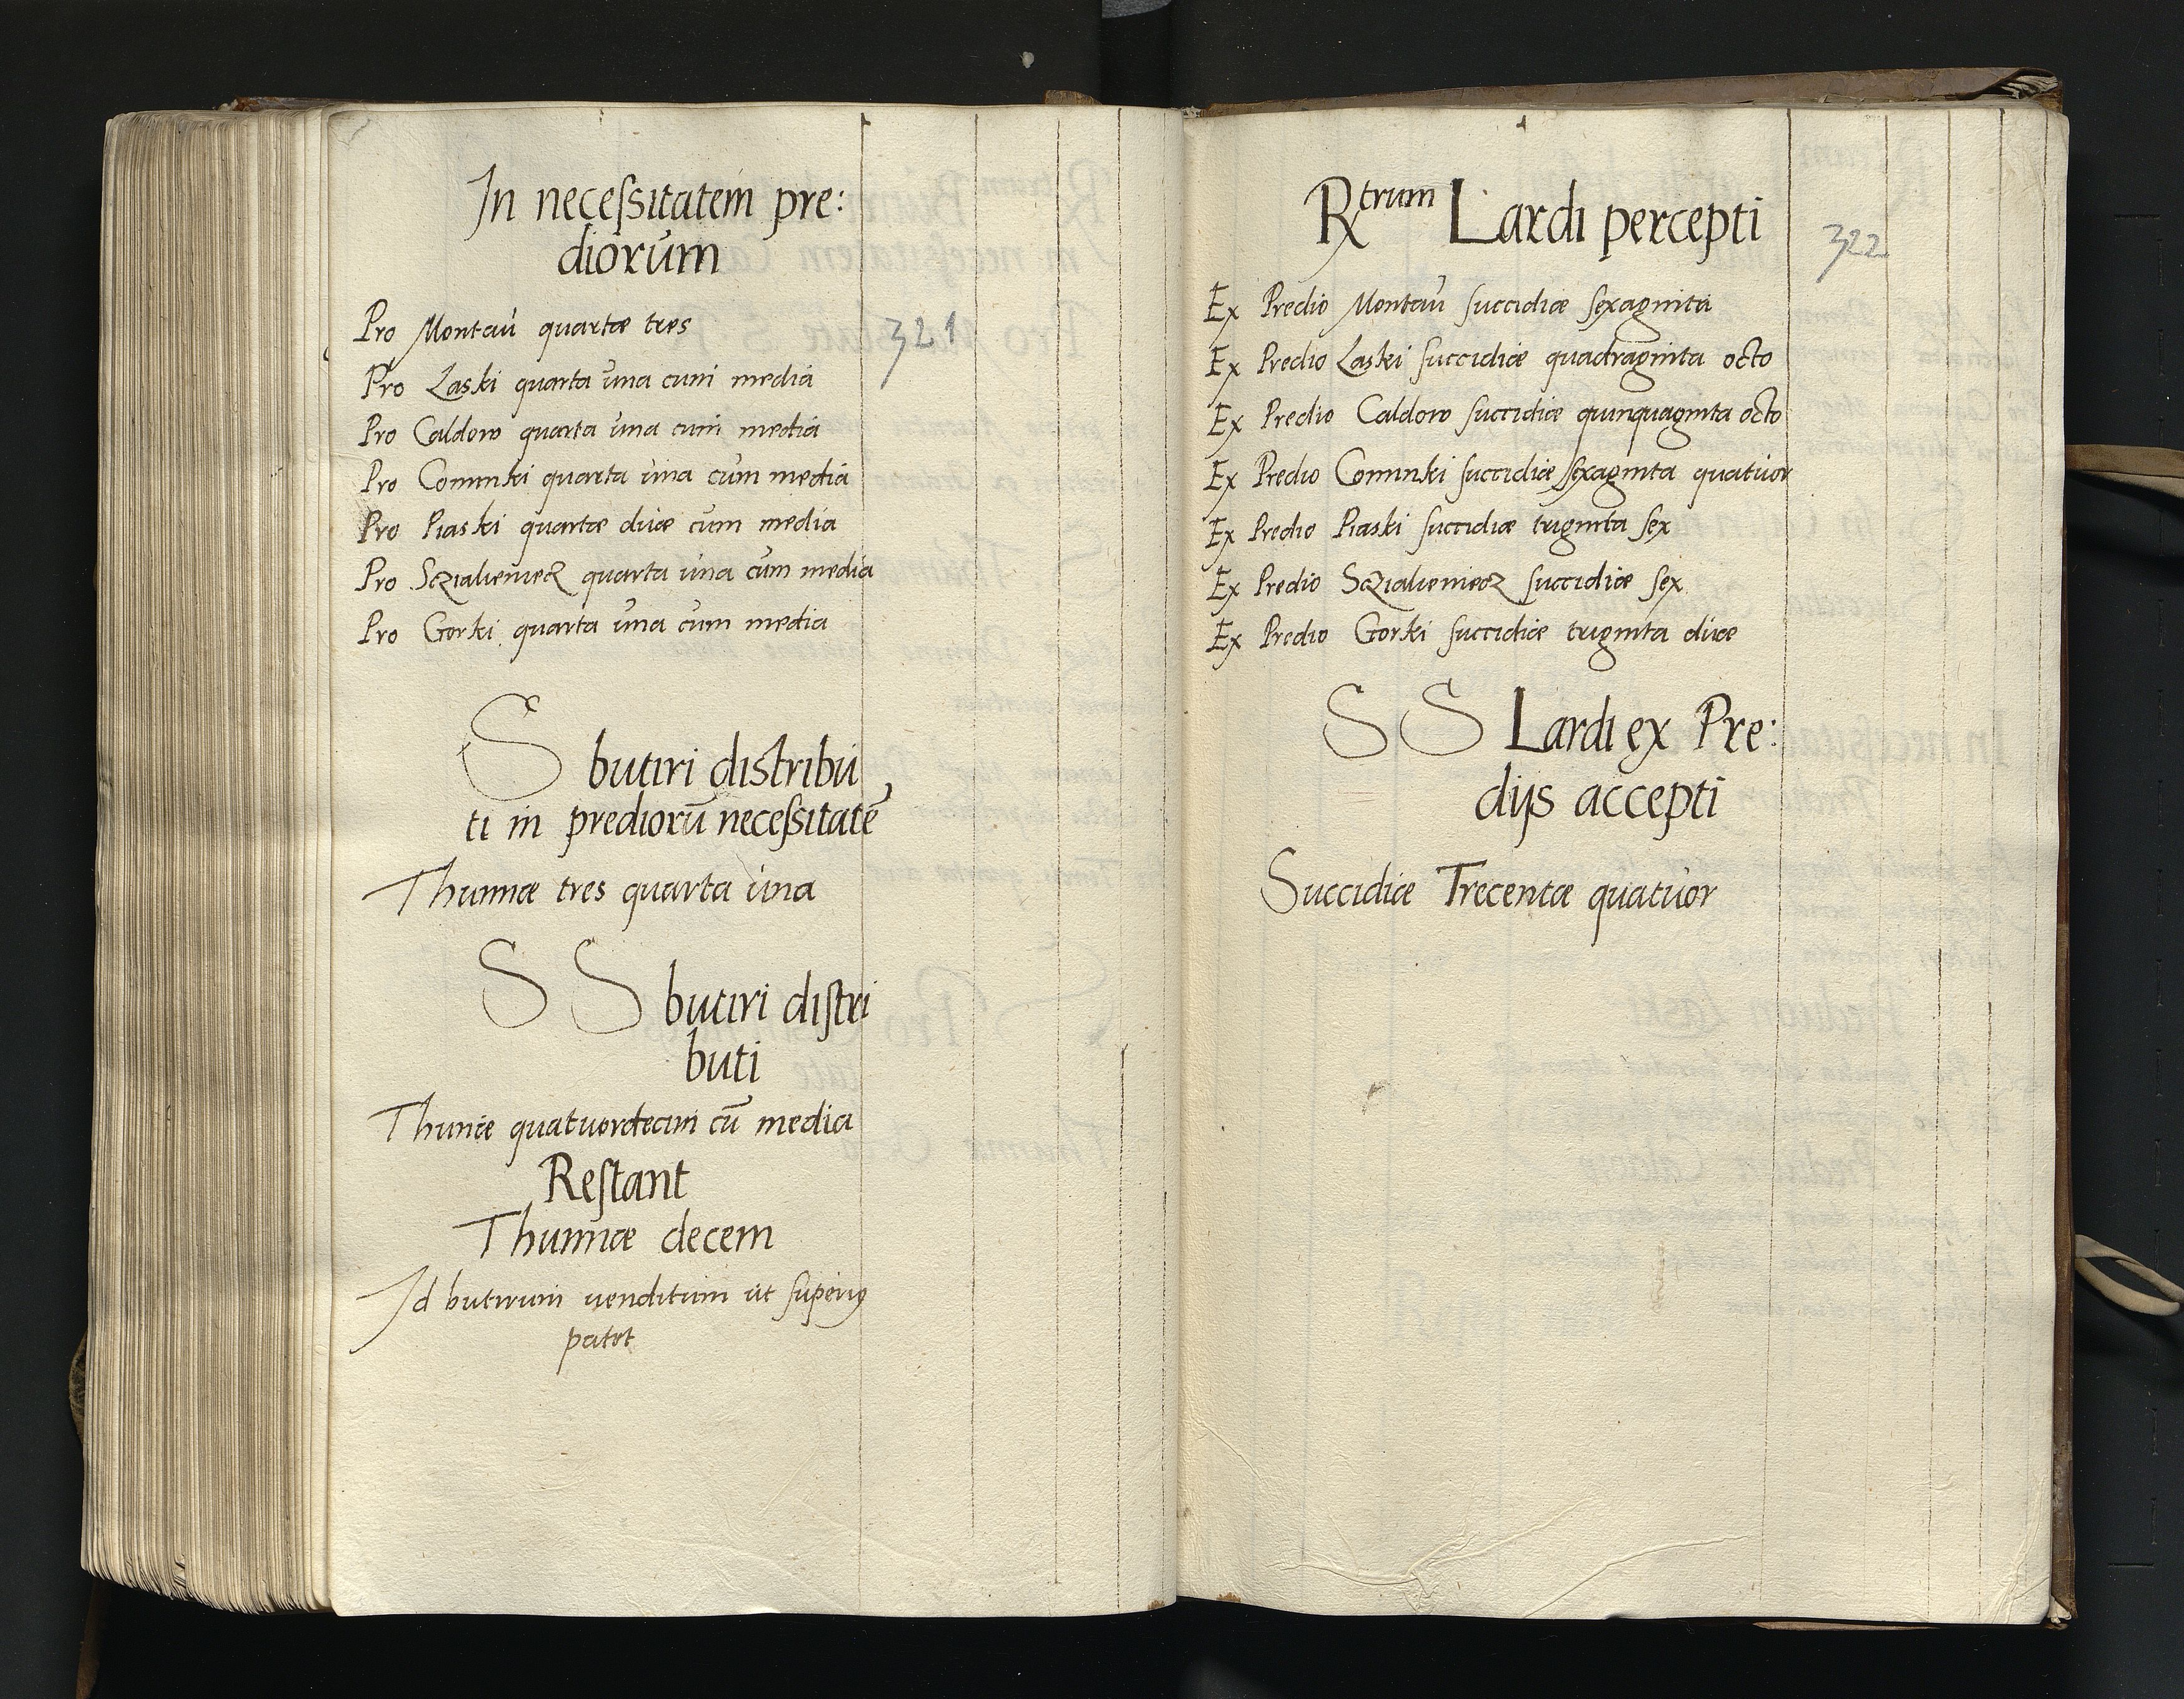 In neceſsitatem pre:
diorum
Pro Montaŭ quartæ tres
321
Pro Laski quarta una cum media
Pro Caldow quarta una cum media
Pro Cominki quarta una cum media
Pro Piaski quartæ duæ cum media
Pro Scziabeniecz quarta una cum media
Pro Gorki quarta una cum media
S butiri distribu
ti in prediorū neceſsitatē
Thunnæ tres quarta una
S S butiri diſtri
buti
Thunæ quatuordecim cū media
Reſtant
Thunnæ decem
Id butirum venditum ut ſuperiꝰ
patet
Rtrum Lardi percepti
322
Ex Predio Montaŭ ſuccidiæ ſexaginta
Ex Predio Laski ſuccidiæ quadraginta octo
Ex Predio Caldow ſuccidiæ quinquaginta octo
Ex Predio Cominki ſuccidiæ ſexaginta quatuor
Ex Predio Piaski ſuccidiæ triginta ſex
Ex Predio Scziabeniecz ſuccidiæ ſex
Ex Predio Gorki ſuccidiæ triginta duæ
S S Lardi ex Pre:
dijs accepti
Succidiæ Trecentæ quatuor